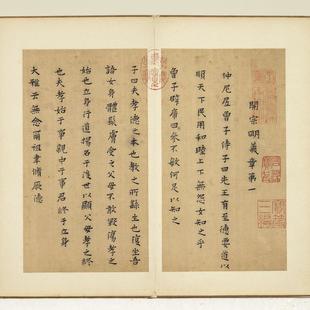 開宗明義章第一
仲尼居曾子侍子曰先王有至德要道以
順天下民用和睦上下無怨女知之乎
曾子避席曰參不敏何足以知之
子曰夫孝德之本也教之所繇生也復坐吾
語女身體髮膚受之父母不敢毀傷孝之
始也立身行道揚名于後世以顯父母孝之終
也夫孝始于事親中于事君終于立身
大雅云無念爾祖聿脩厥德